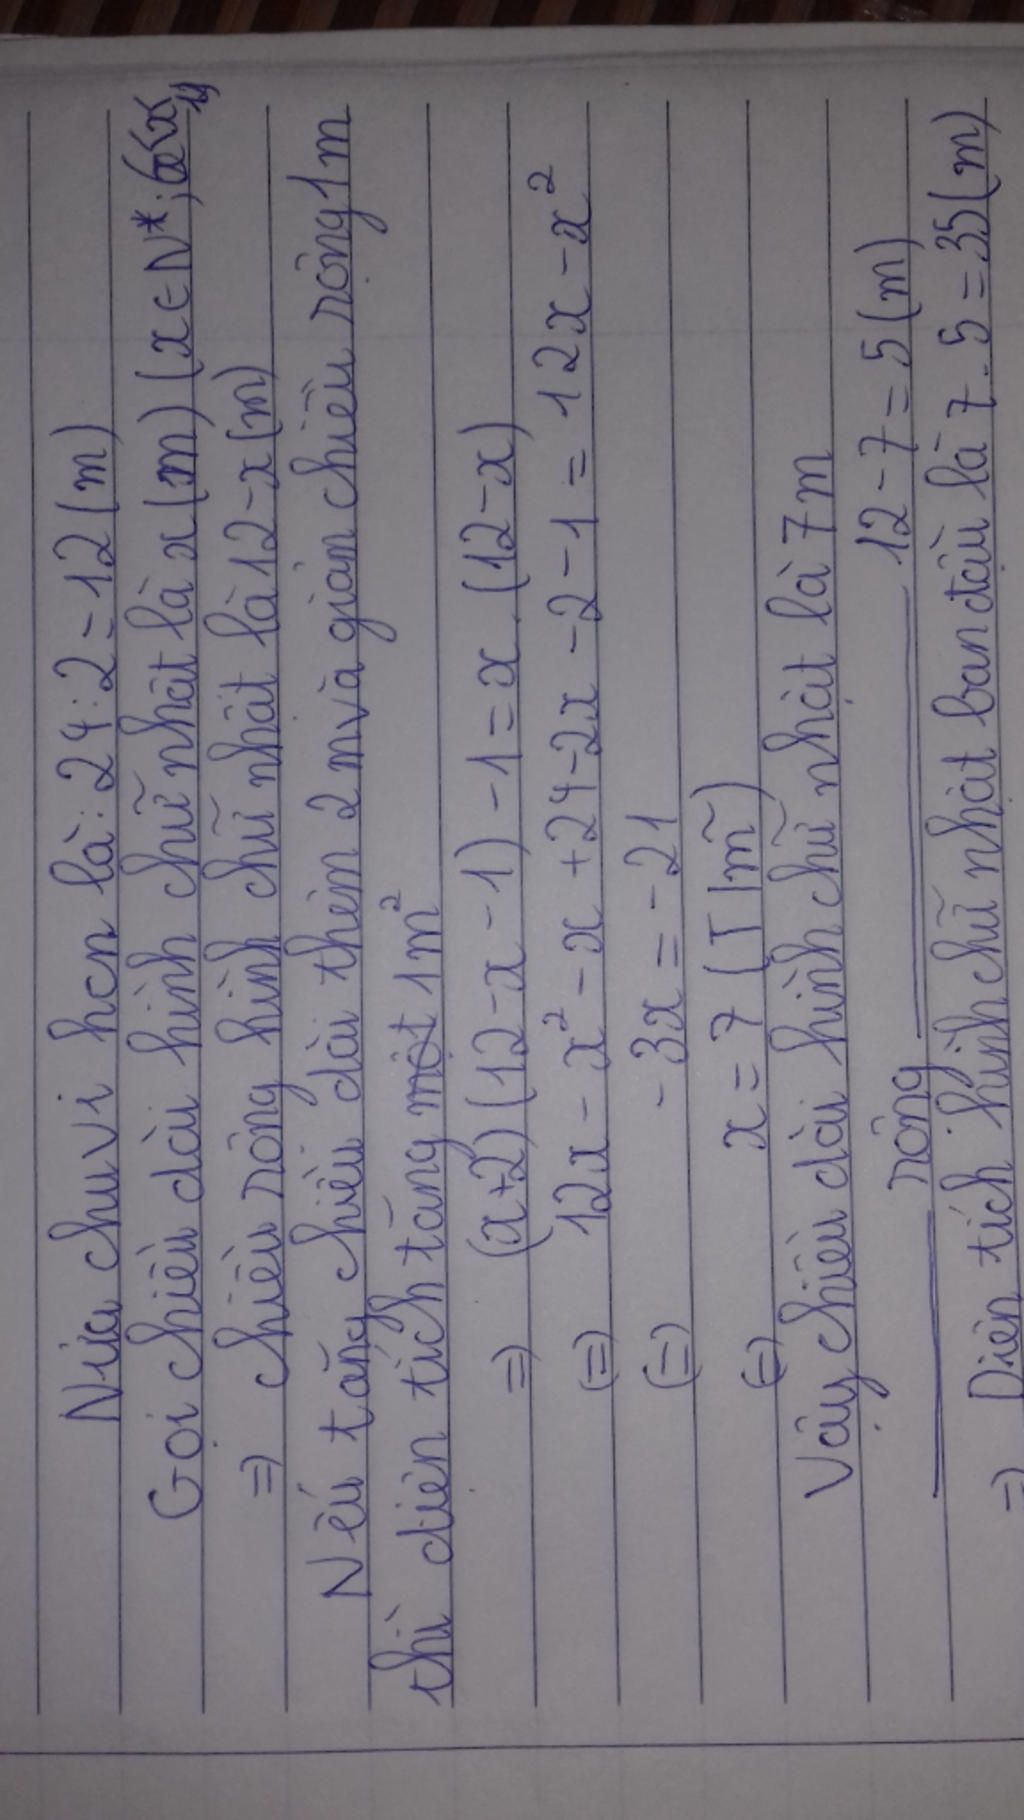 Nửa chu vi hcn là: 24 : 2 = 12 (m)
Gọi chiều dài hình chữ nhật là x (m) (x ∈ N*; 6<x<12
=) chiều rộng hình chữ nhật là 12 - x (m)
Nếu tăng chiều dài thêm 2m và giảm chiều rộng 1m
thì diện tích tăng một 1m²
=) (x+2) (12 - x - 1) - 1 = x. (12 - x)
(=) 12x - x² - x + 24 - 2x - 2 - 1 = 12x - x²
(=) - 3x = - 21
(=) x = 7 (T/m)
Vậy chiều dài hình chữ nhật là 7m
rộng 12 - 7 = 5 (m)
=) Diện tích hình chữ nhật ban đầu là 7. 5 = 35 (m)